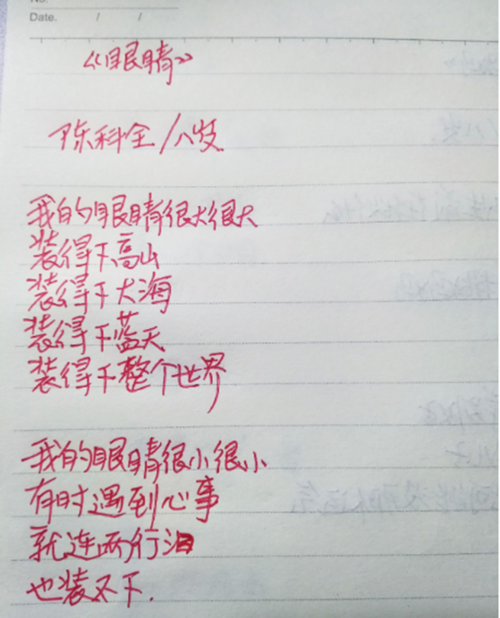 No.
Date. / /
《眼睛》
陈科全/八岁
我的眼睛很大很大
装得下高山
装得下大海
装得下蓝天
装得下整个世界
我的眼睛很小很小
有时遇到心事
就连两行泪
也装不下.